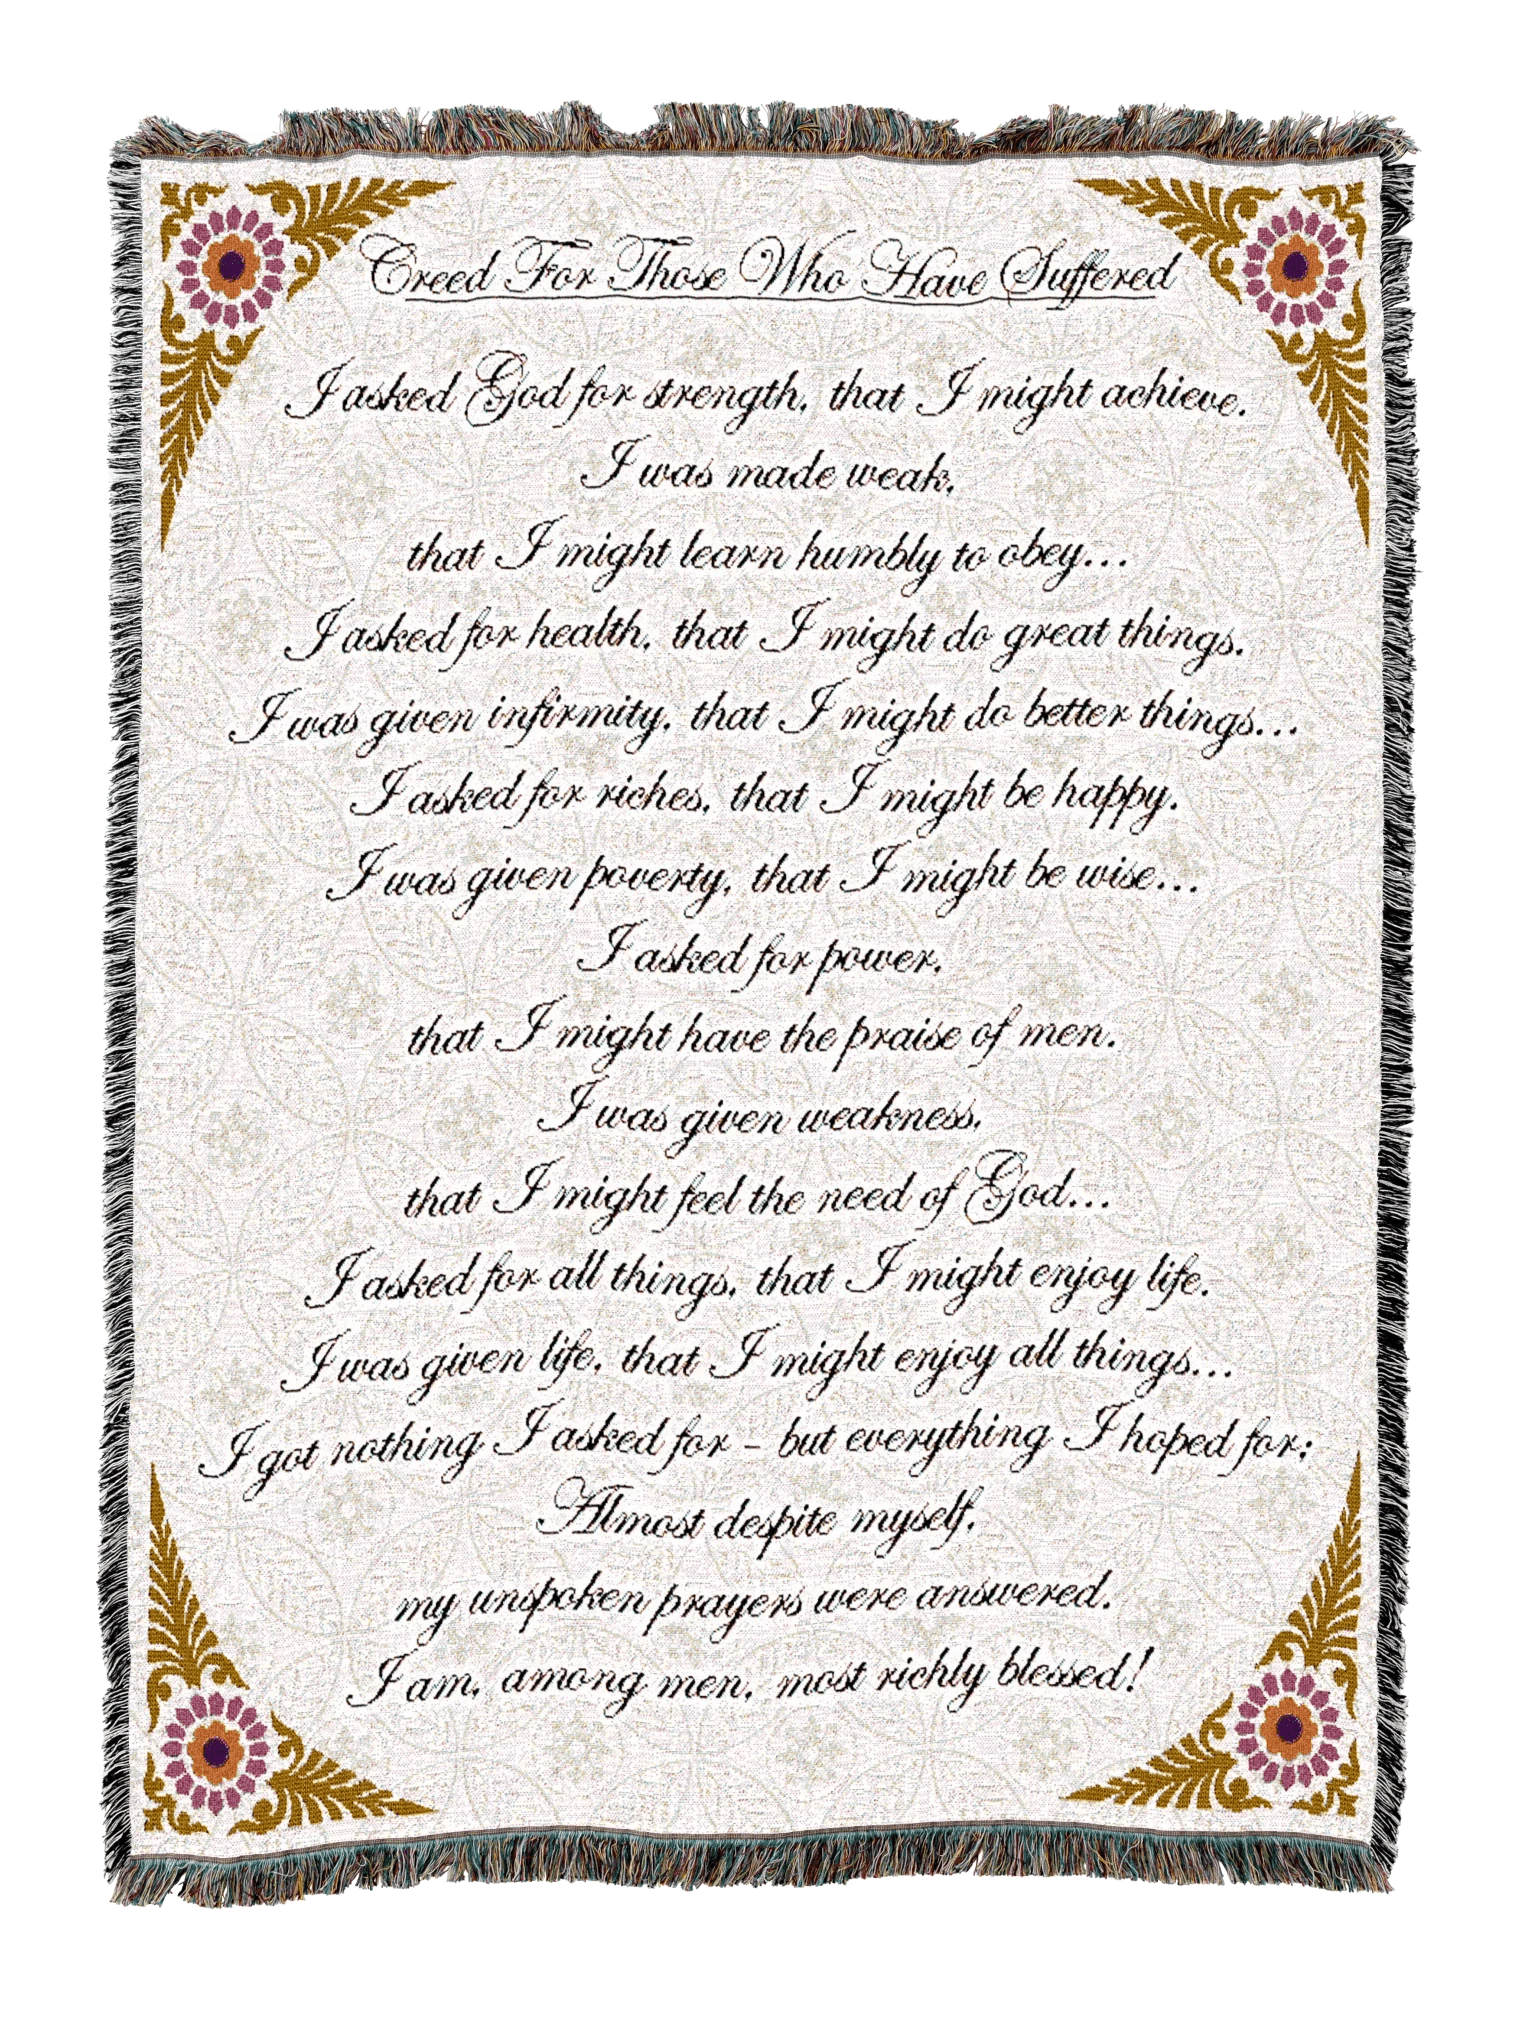 Creed For Those Who Have Suffered
I asked God for strength, that I might achieve.
I was made weak,
that I might learn humbly to obey...
I asked for health, that I might do great things.
I was given infirmity, that I might do better things...
I asked for riches, that I might be happy.
I was given poverty, that I might be wise...
I asked for power,
that I might have the praise of men.
I was given weakness,
that I might feel the need of God...
I asked for all things, that I might enjoy life.
I was given life, that I might enjoy all things...
I got nothing I asked for – but everything I hoped for;
Almost despite myself,
my unspoken prayers were answered.
I am, among men, most richly blessed!